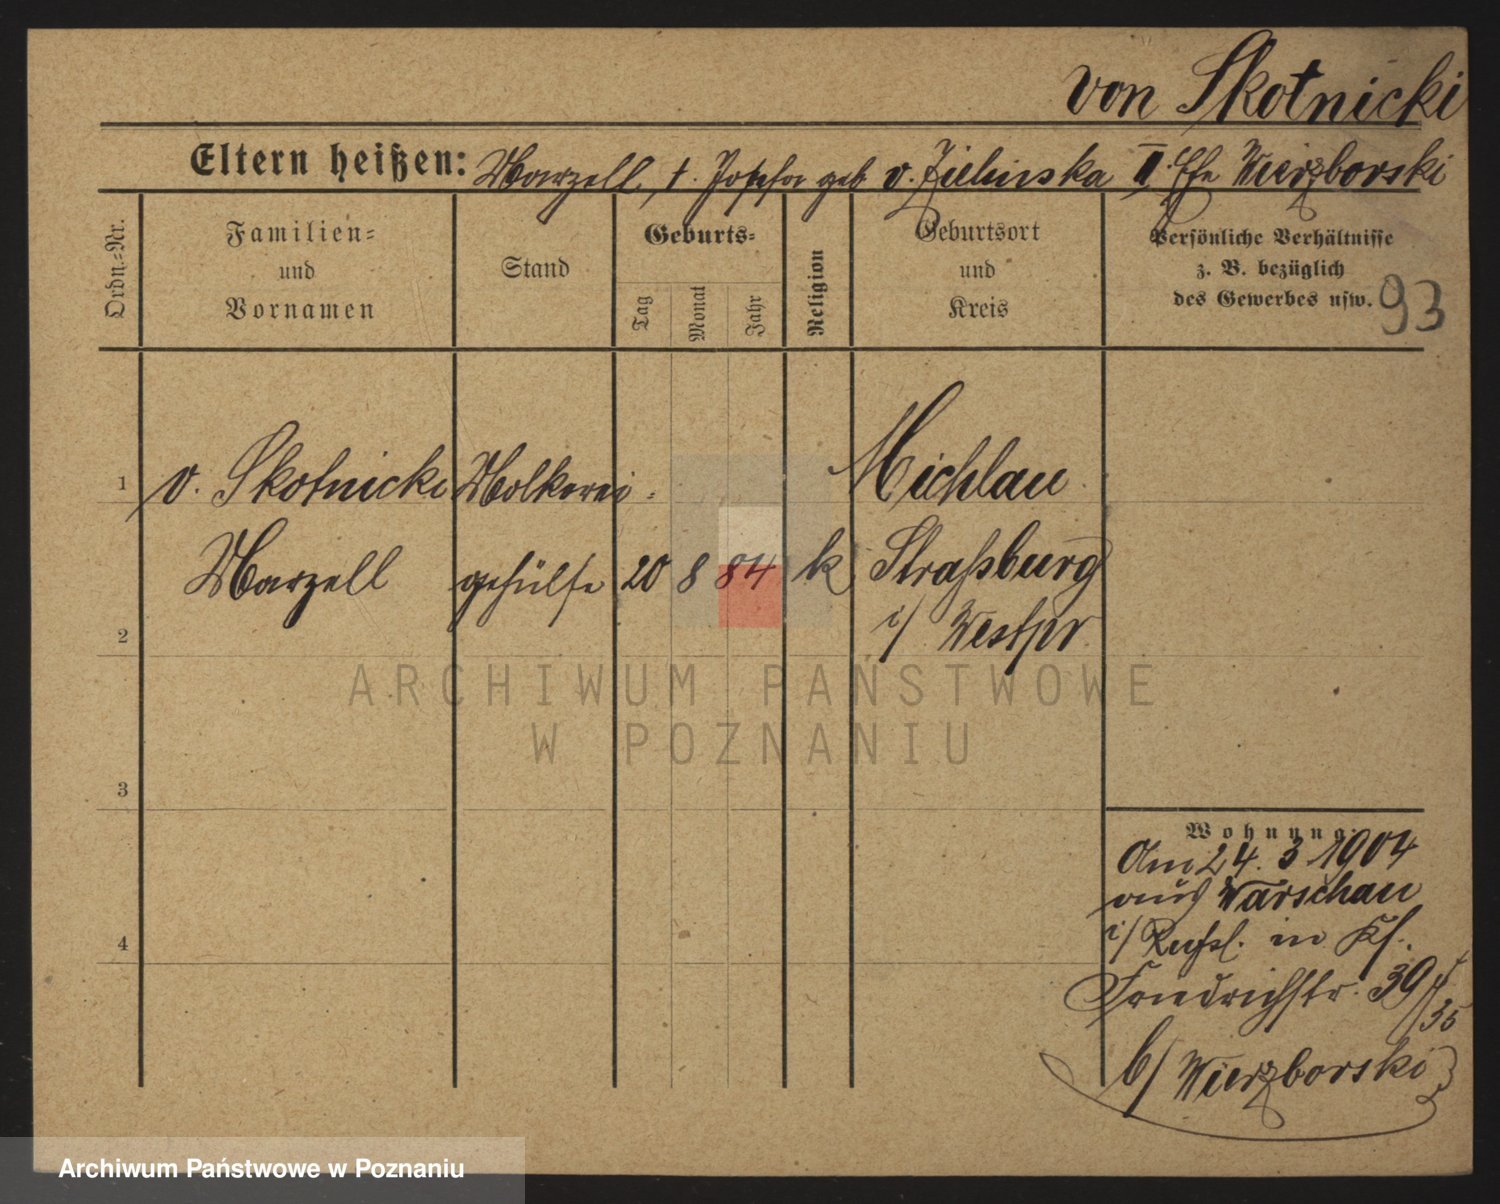 von Skotnicki
Eltern heißen: Marzell, t. Josepha geb v. Zielinska II. Ehe Wierzborski
Ordn.-Nr.
Familien-
und
Vornamen
Stand
Geburts-
Tag
Monat
Jahr
Religion
Geburtsort
und
Kreis
Persönliche Verhältnisse
z. B. bezüglich
des Gewerbes usw.
93
1
v. Skotnicki
Molkerei-
Michlau
Marzell
gehülfe
20
8
84
k
Straßburg
i/ Westpr
2
3
4
Wohnung.
Am 24. 3 1904
aus Warschau
i/ Rußl. in
Friedrichstr. 39
35
b/ Wierzborski
ARCHIWUM PAŃSTWOWE
W POZNANIU
Archiwum Państwowe w Poznaniu